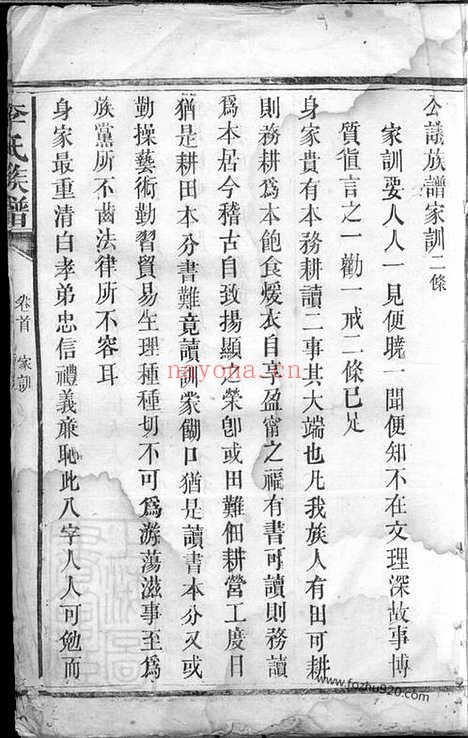 公議族譜家訓二條
家訓要人人一見便曉一聞便知不在文理深故事博
質直言之一勸一戒二條已足
身家貴有本務耕讀二事其大端也凡我族人有田可耕
則務耕爲本飽食煖衣自享盈甯之福有書可讀則務讀
爲本居今稽古自致揚顯之榮卽或田難佃耕營工度日
猶是耕田本分書難竟讀訓蒙餬口猶是讀書本分又或
勤操藝術勤習貿易生理種種切不可爲游蕩滋事至爲
族黨所不齒法律所不容耳
身家最重清白孝弟忠信禮義廉恥此八字人人可勉而
李氏族譜
卷首 家訓
nayona.cn
www.fozhu920.com